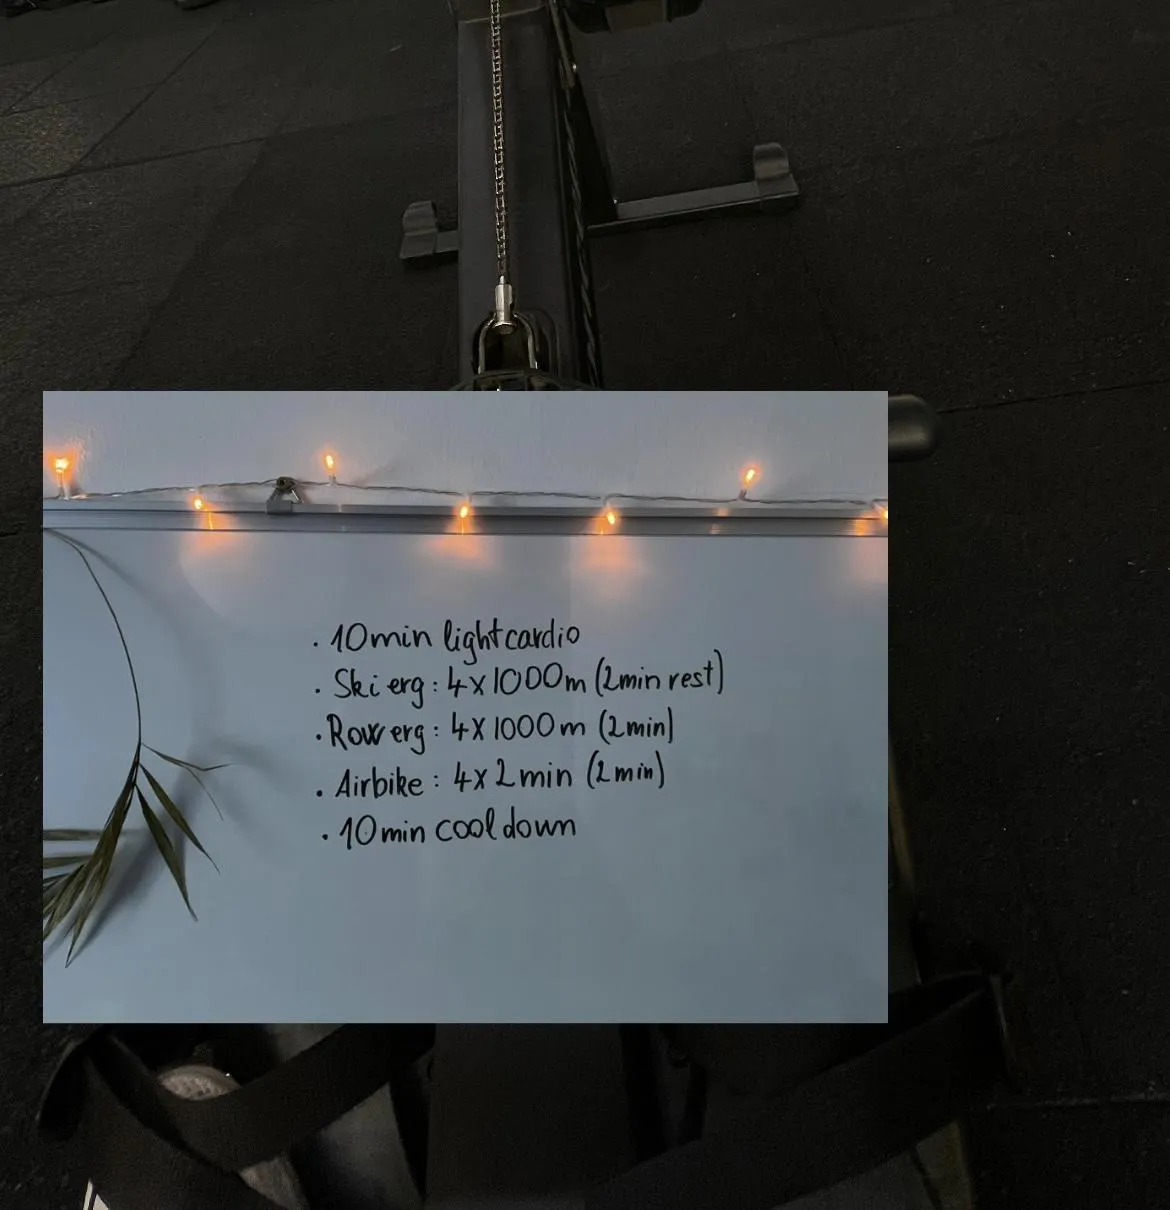 · 10min light cardio
· Ski erg: 4x1000m (2min rest)
· Row erg: 4x1000m (2min)
· Airbike: 4x2min (2min)
· 10min cool down